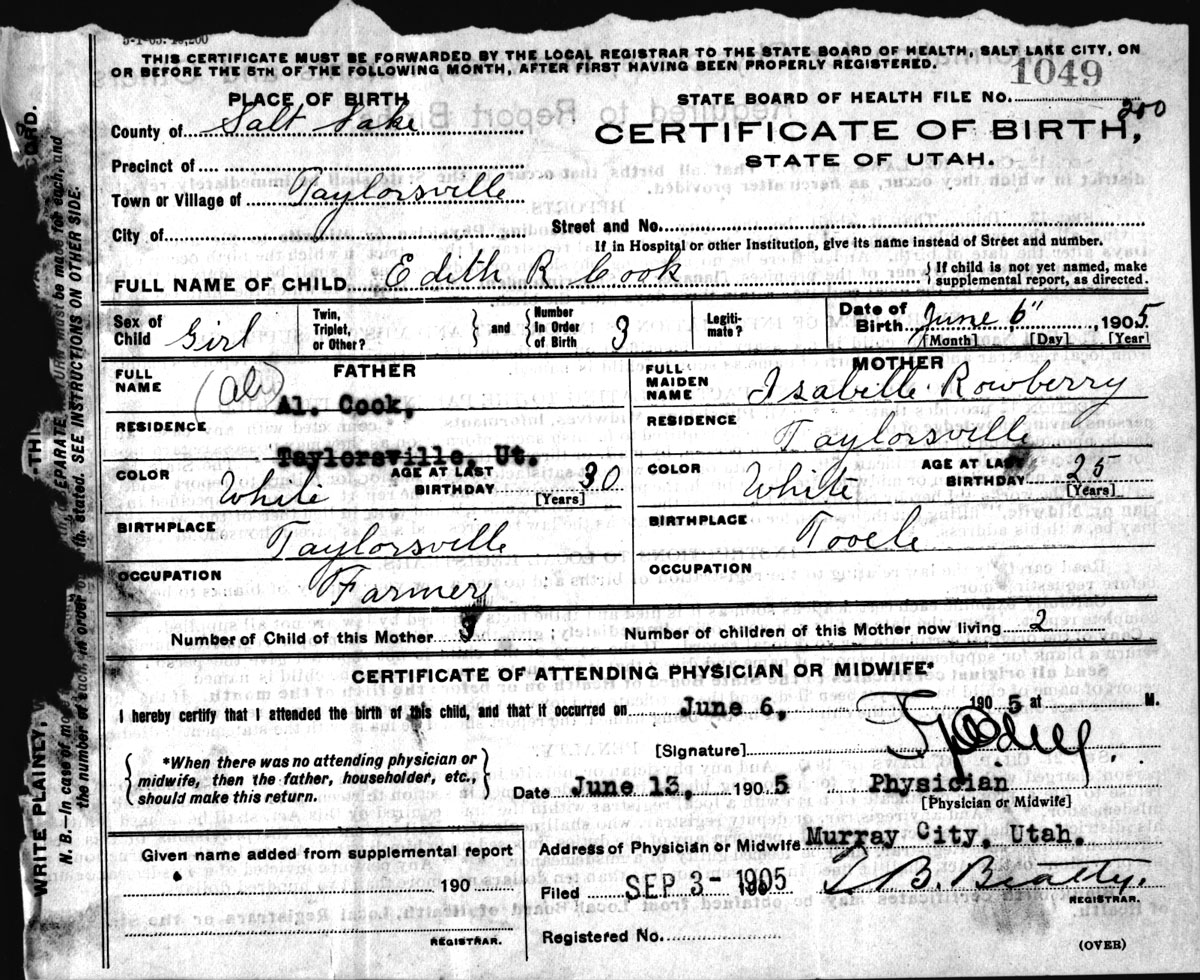 THIS CERTIFICATE MUST BE FORWARDED BY THE LOCAL REGISTRAR TO THE STATE BOARD OF HEALTH, SALT LAKE CITY, ON
OR BEFORE THE 5TH OF THE FOLLOWING MONTH, AFTER FIRST HAVING BEEN PROPERLY REGISTERED.
1049
PLACE OF BIRTH
STATE BOARD OF HEALTH FILE NO.
200
County of Salt Lake
CERTIFICATE OF BIRTH,
STATE OF UTAH.
Precinct of
Town or Village of Taylorsville
City of
Street and No.
If in Hospital or other Institution, give its name instead of Street and number.
FULL NAME OF CHILD Edith R Cook
If child is not yet named, make
supplemental report, as directed.
Sex of Child Girl
Twin, Triplet, or Other?
and
Number In Order of Birth 3
Legiti-mate?
Date of Birth June 6" , 1905
[Month] [Day] [Year]
FATHER
FULL NAME
Al. Cook,
RESIDENCE
Taylorsville, Ut.
COLOR White
AGE AT LAST BIRTHDAY 30
[Years]
BIRTHPLACE
Taylorsville
OCCUPATION
Farmer
MOTHER
FULL MAIDEN NAME Isabelle Rowberry
RESIDENCE
Taylorsville
COLOR White
AGE AT LAST BIRTHDAY 25
[Years]
BIRTHPLACE
Tooele
OCCUPATION
Number of Child of this Mother 3 ;
Number of children of this Mother now living 2
CERTIFICATE OF ATTENDING PHYSICIAN OR MIDWIFE*
I hereby certify that I attended the birth of this child, and that it occurred on June 6, 1905 at M.
*When there was no attending physician or
midwife, then the father, householder, etc.,
should make this return.
[Signature]
Date June 13, 1905
Physician
[Physician or Midwife]
Given name added from supplemental report
190
REGISTRAR.
Address of Physician or Midwife Murray City, Utah.
Filed SEP 3-1905
B. Beatty.
REGISTRAR.
Registered No.
(OVER)
WRITE PLAINLY,
N. B.—In case of
the number of each, in order of
stated. SEE INSTRUCTIONS ON OTHER SIDE.